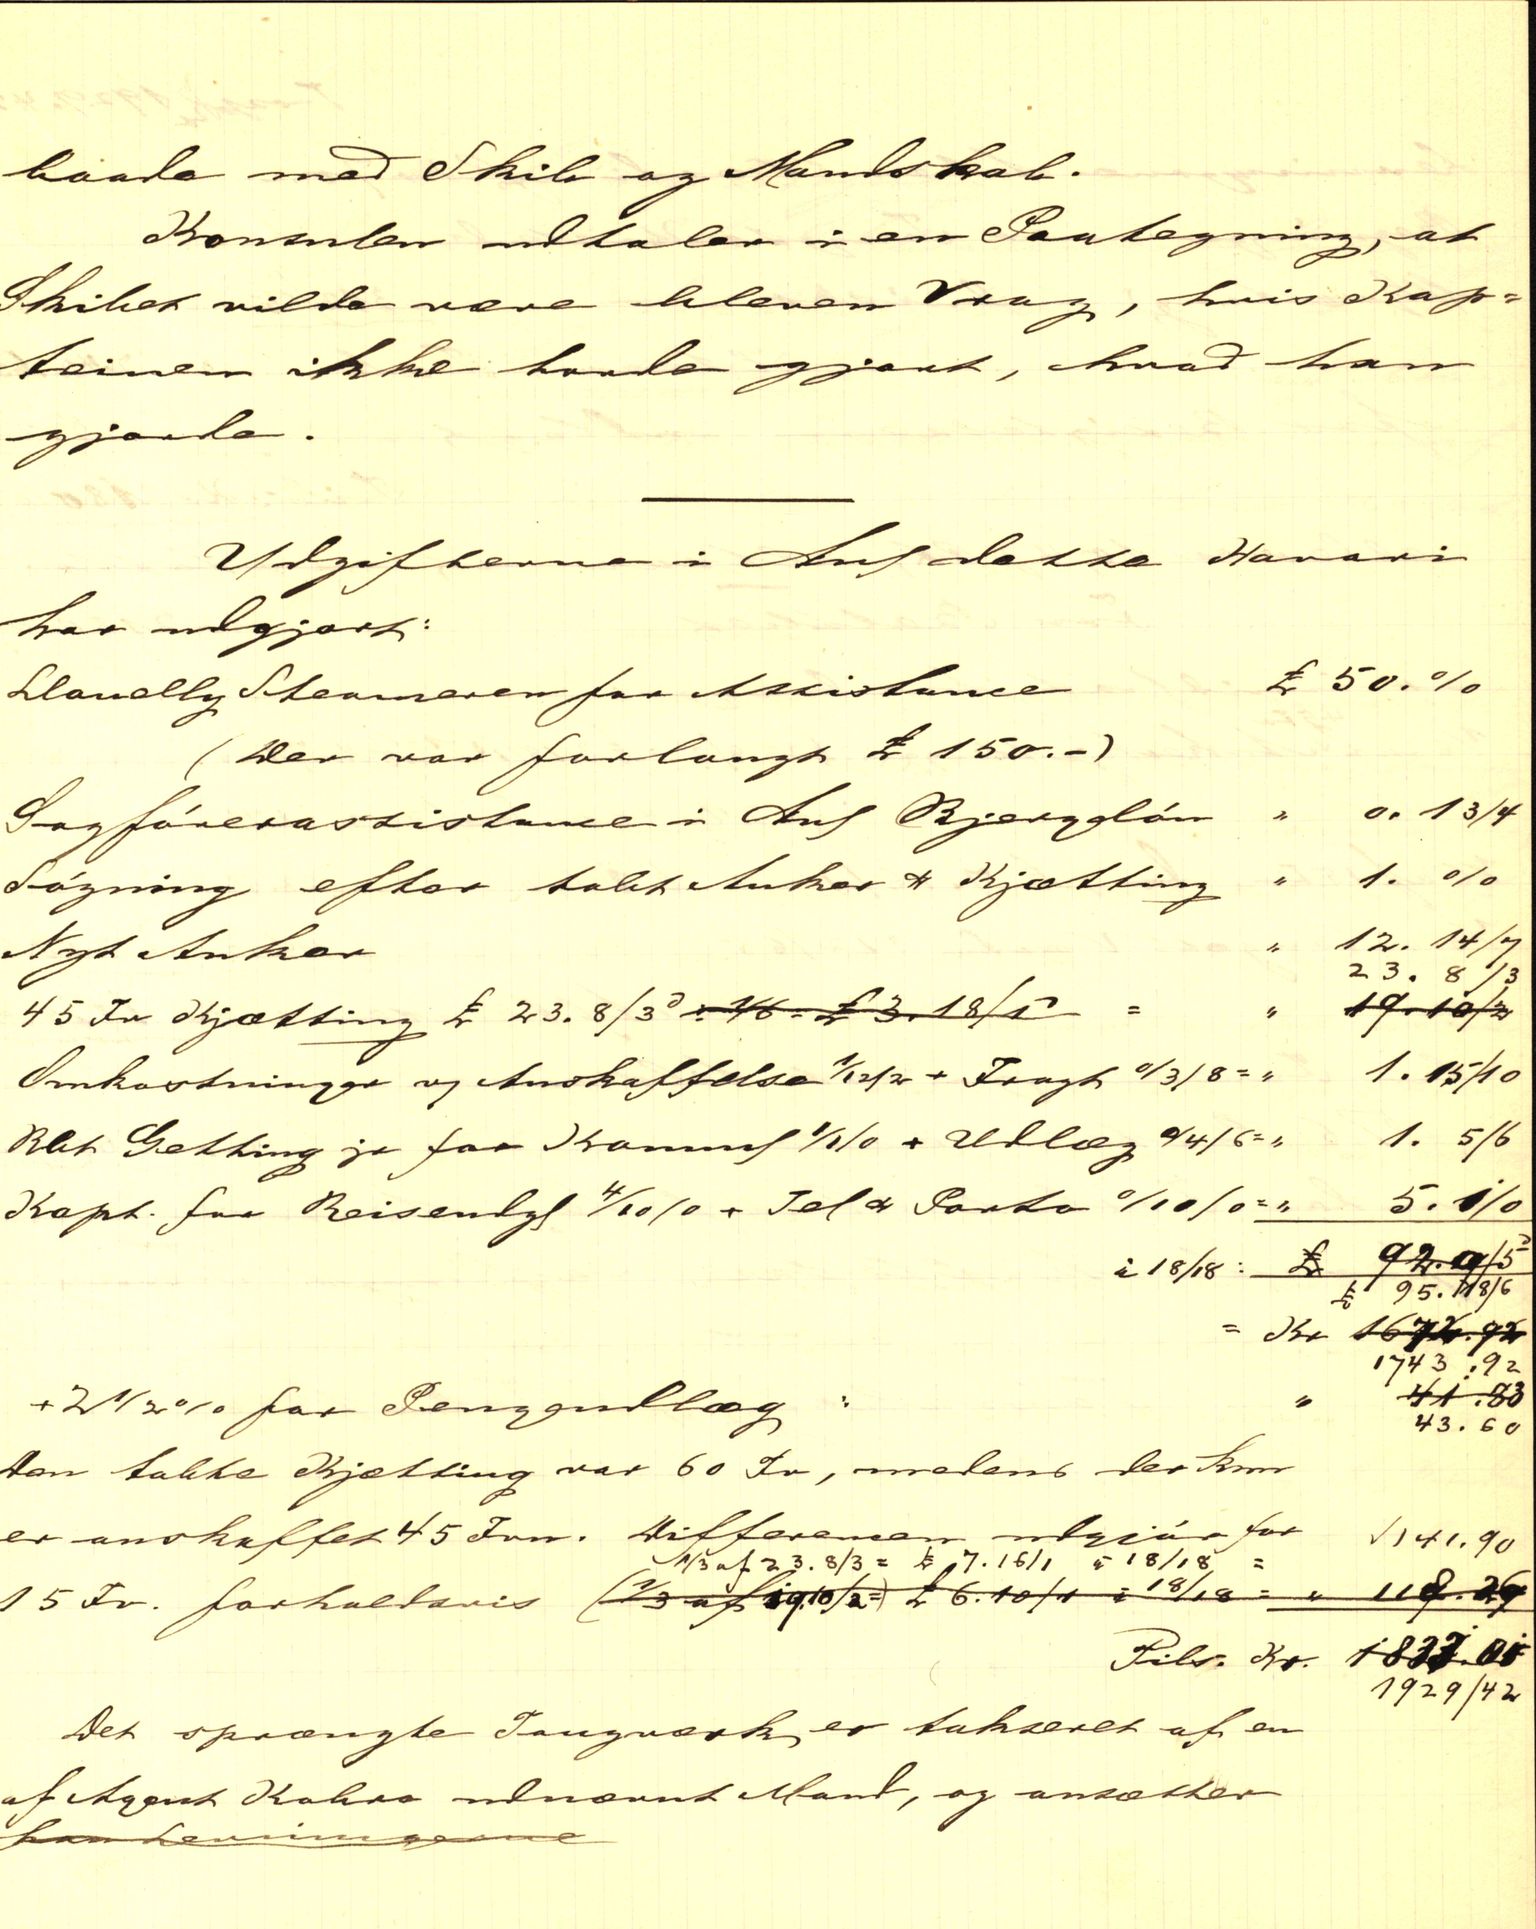 baade med Skib og Mandskab.
Konsulen udtaler i en Paategning, at
Skibet vilde være bleven Vrag, hvis Kap=
teinen ikke havde gjort, hvad han
gjorde.
Udgifterne i Anl dette Havari
har udgjort:
Llanelly Steameren for Assistance £ 50.%
(Der var forlangt £ 150.-)
Sagförerassistance i Anl Bjerglön " 0.13/4
Sögning efter tabt Anker & Kjætting " 1. %
Nyt Anker " 12.14/7
23. 8/3
45 Fv Kjætting £ 23.8/3d ÷ 1/6 = £ 3.18/1d = " 19.10/2
Omkostninger og Anskaffelse 1/12/2 + Fragt 0/3/8 = " 1.15/10
Rbt Getting jr for Komms 1/1/0 + Udlæg 0/4/6 = " 1. 5/6
Kapt. for Reiseudgf 4/10/0 + Tel & Porto 0/10/0 = " 5. /0
à 18/18: £ 92. 0/5
£ 95.18/6
= Kr 1672.92
1743.92
+ 2 1/2 % for Pengeudlæg : " 41.83
43.60
Den tabte Kjætting var 60 Fv, medens der kun
er anskaffet 45 Fvn. Differencen udgjör for 141.90
1/3 af 23.8/3 = £ 7.16/1 à 18/18 =
15 Fv. forholdsvis (1/3 af 19.10/2 =) £ 6.10/1 à 18/18 = " 118.26
Tils. Kr.
1929/42
Det sprængte Tougværk er takseret af en
af Agent Kahrs udnævnt Mand, og ansætter
han